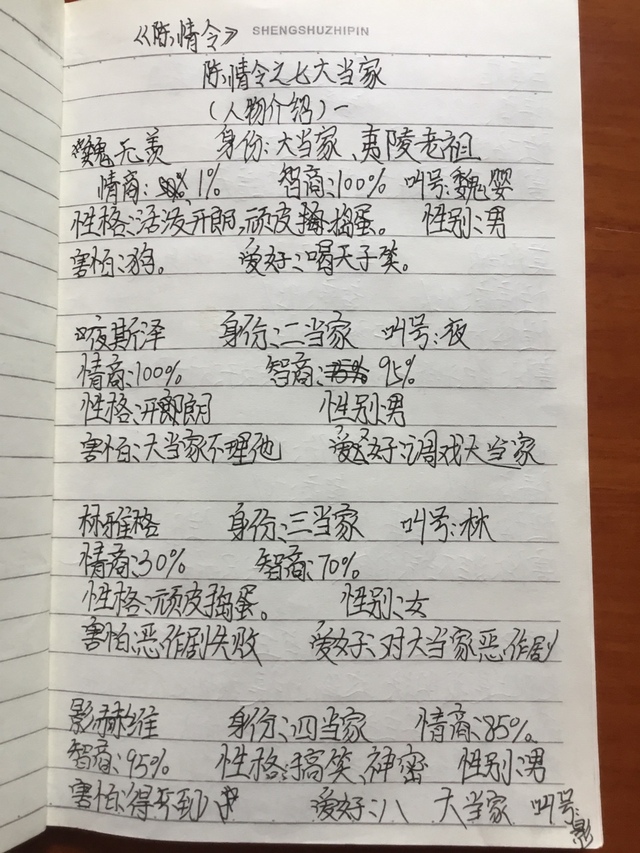 《陈情令》 SHENGSHUZHIPIN
陈情令之七大当家
（人物介绍）一
魏无羡 身份：大当家、夷陵老祖
情商：1% 智商：100% 叫号：魏婴
性格：活泼开朗，顽皮捣蛋。 性别：男
害怕：狗。 爱好：喝天子笑。
夜斯泽 身份：二当家 叫号：夜
情商：100% 智商：95%
性格：开朗 性别：男
害怕：大当家不理他 爱好：调戏大当家
林雅格 身份：三当家 叫号：林
情商：30% 智商：70%
性格：顽皮捣蛋。 性别：女
害怕：恶作剧失败 爱好：对大当家恶作剧
影赫维 身份：四当家 情商：85%
智商：95% 性格：搞笑、神密 性别：男
害怕：得不到八 爱好：八 大当家 叫号：影